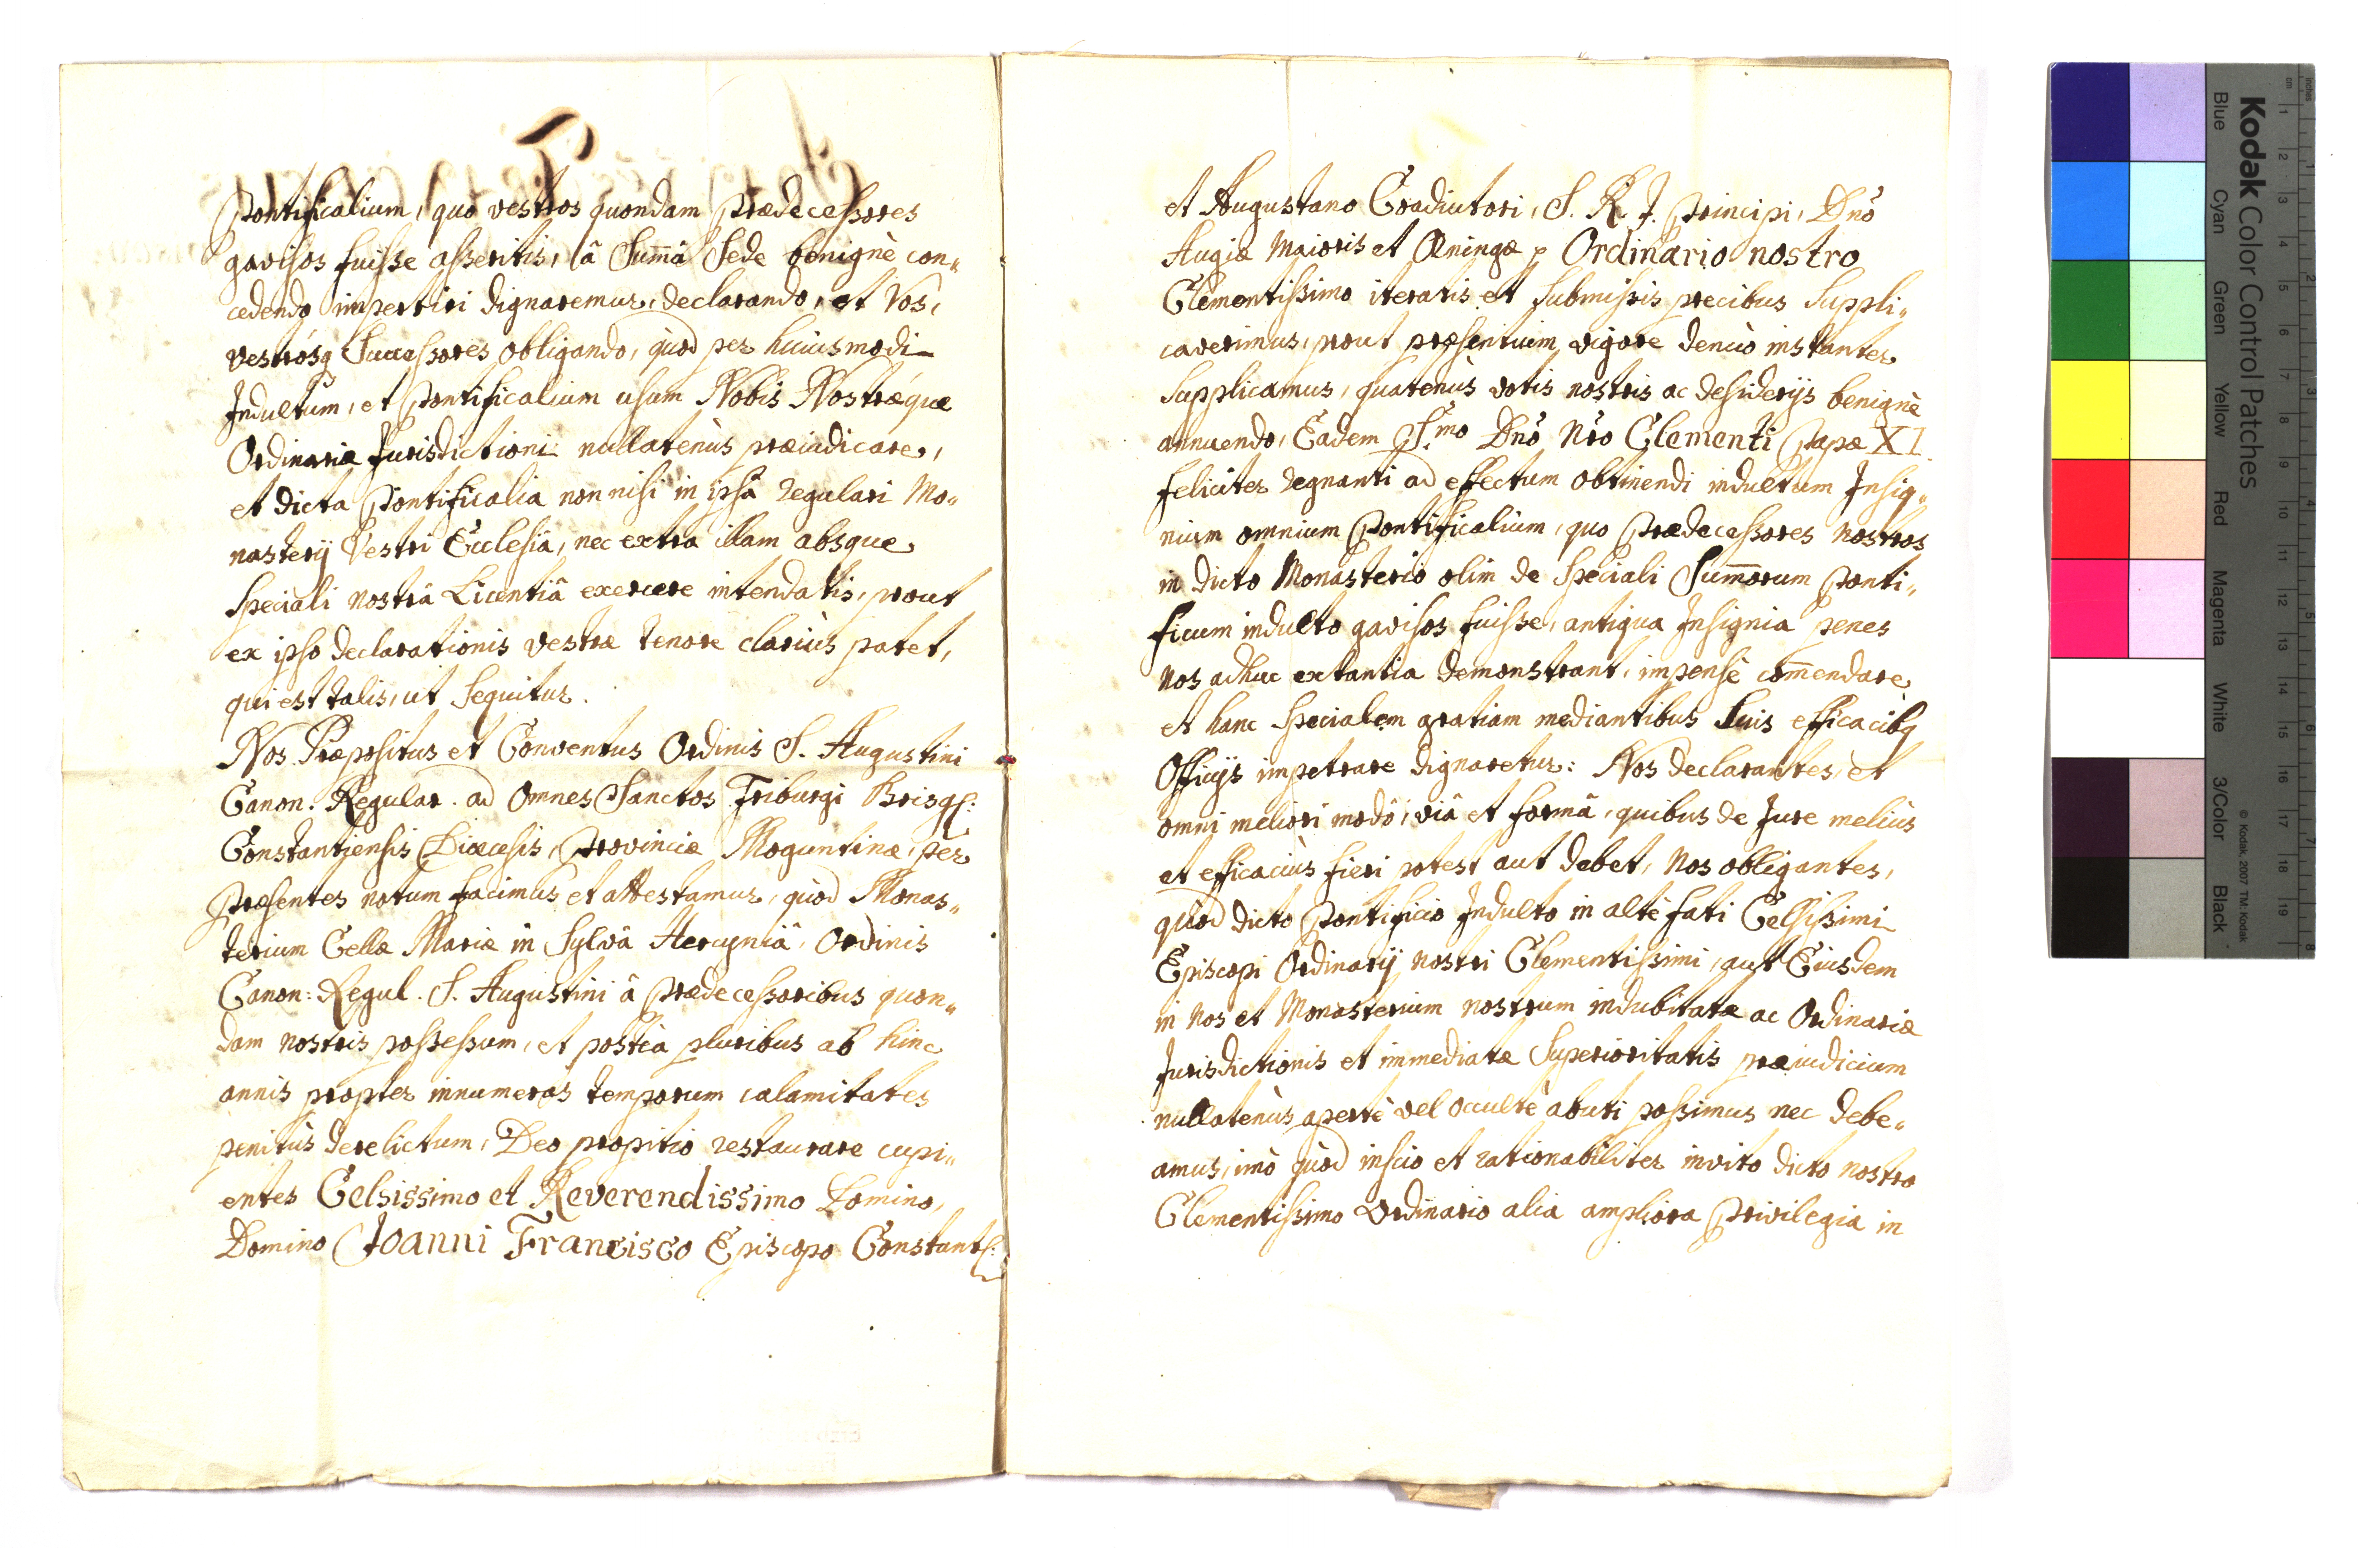 Pontificalium, quo vestros quondam Prædecessores
gavisos fuisse asseritis, â Sum̄â Sede benignè con„
cedendo impertiri dignaremur, declarando, et Vos,
vestrósq Successores obligando, quòd per huiusmodi
Indultum, et Pontificalium usum Nobis Nostræque
Ordinariæ Jurisdictioni nullatenùs præiudicare,
et dicta Pontificalia non nisi in ipsâ regulari Mo„
nasterij Vestri Ecclesiâ, nec extra illam absque
speciali nostrâ Licentiâ exercere intendatis, prout
ex ipso declarationis vestræ tenore clariùs patet,
qui est talis, ut sequitur.
Nos Præpositus et Conventus Ordinis S. Augustini
Canon. Regular. ad Omnes Sanctos Friburgi Brisg:
Constantiensis Diœcesis, Provinciæ Moguntinæ, per
Præsentes notum facimus et attestamur, quòd Monas„
terium Cellæ Mariæ in Sylvâ Hercyniâ, Ordinis
Canon: Regul. S. Augustini â Prædecessoribus quon„
dam nostris possessum, et postea pluribus ab hinc
annis propter innumeras temporum calamitates
penitùs derelictum, Deo propitio restaurare cupi„
entes Celsissimo et Reverendissimo Domino,
Domino Joanni Francisco Episcopo Constant:
et Augustano Coadiutori, S. R. J. Principi, Dnō
Augiæ Maioris et Œningæ p Ordinario nostro
Clementissimo iteratis et submissis precibus suppli„
caverimus, prout præsentium vigore denuò instanter
supplicamus, quatenùs votis nostris ac desiderijs benignè
annuendo, Eadem S.mo Dnō Nrō Clementi Papæ XI.
feliciter regnanti ad effectum obtinendi indultum Insig„
nium omnium Pontificalium, quo Prædecessores nostros
in dicto Monasterio olim de speciali Sum̄orum Ponti„
ficum indulto gavisos fuisse, antiqua Insignia penes
nos adhuc extantia demonstrant, impensè com̄endare
et hanc specialem gratiam mediantibus suis efficacibq
Officijs impetrare dignaretur: Nos declarantes, et
omni meliori modô, viâ et formâ, quibus de Jure meliùs
et efficaciùs fieri potest aut debet, Nos obligantes,
quòd dicto Pontificio Indulto in altè fati Celsissimi
Episcopi Ordinarij nostri Clementissimi, aut Eiusdem
in nos et Monasterium nostrum indubitatæ ac Ordinariæ
Jurisdictionis et immediatæ Superioritatis præiudicium
nullatenùs apertè vel occultè abuti possimus nec debe„
amus, imò quòd inscio et rationabiliter invito dicto nostro
Clementissimo Ordinario alia ampliora Privilegia in
Kodak Color Control Patches
© Kodak, 2007 TM: Kodak
Blue Cyan Green Yellow Red Magenta White 3/Color Black
cm 1 2 3 4 5 6 7 8 9 10 11 12 13 14 15 16 17 18 19
inches 1 2 3 4 5 6 7 8